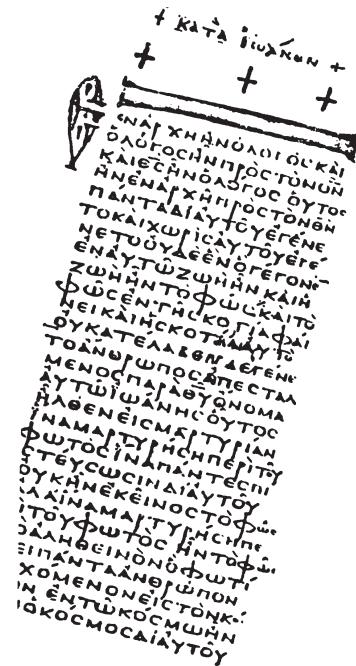 + κατὰ ἰωάννην +
+ + +
ΕΝΑΡΧΗΗΝΟΛΟΓΟϹΚΑΙ
ΟΛΟΓΟϹΗΝΠΡΟϹΤΟΝΘΝ
ΚΑΙΘϹΗΝΟΛΟΓΟϹΟΥΤΟϹ
ΗΝΕΝΑΡΧΗΠΡΟϹΤΟΝΘΝ
ΠΑΝΤΑΔΙΑΥΤΟΥΕΓΕΝΕ
ΤΟΚΑΙΧΩΡΙϹΑΥΤΟΥΕΓΕ
ΝΕΤΟΟΥΔΕΕΝΟΓΕΓΟΝΕ
ΕΝΑΥΤΩΖΩΗΗΝΚΑΙΗ
ΖΩΗΗΝΤΟΦΩϹΚΑΙΤΟ
ΦΩϹΕΝΤΗϹΚΟΤΙΑΦΑΙ
ΝΕΙΚΑΙΗϹΚΟΤΙΑΑΥΤΟ
ΟΥΚΑΤΕΛΑΒΕΝΔΕΓΕΝΕ
ΤΟΑΝΘΡΩΠΟϹΑΠΕϹΤΑΛ
ΜΕΝΟϹΠΑΡΑΘΥΟΝΟΜΑ
ΑΥΤΩΙΩΑΝΗϹΟΥΤΟϹ
ΗΛΘΕΝΕΙϹΜΑΡΤΥΡΙΑΝ
ΙΝΑΜΑΡΤΥΡΗϹΗΠΕΡΙΤΟΥ
ΦΩΤΟϹΙΝΑΠΑΝΤΕϹΠΙ
ϹΤΕΥϹΩϹΙΝΔΙΑΥΤΟΥ
ΟΥΚΗΝΕΚΕΙΝΟϹΤΟΦΩϹ
ΛΑΙΝΑΜΑΡΤΥΡΗϹΗΠΕ
ΙΤΟΥΦΩΤΟϹΗΝΤΟΦΩϹ
ΟΑΛΗΘΕΙΝΟΝΟΦΩΤΙ
ΕΙΠΑΝΤΑΑΝΘΡΩΠΟΝ
ΧΟΜΕΝΟΝΕΙϹΤΟΝΚΟ
ΟΝΕΝΤΩΚΟϹΜΩΗΝ
ΟΚΟϹΜΟϹΔΙΑΥΤΟΥ